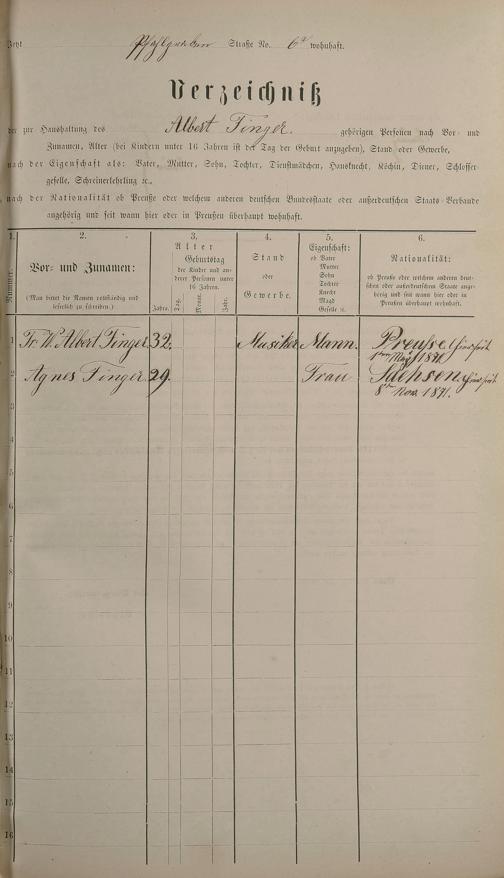 Jetzt Pfahlgraben Straße No. 6a wohnhaft.
Verzeichniß
der zur Haushaltung des Albert Finger. gehörigen Personen nach Vor- und
Zunamen, Alter (bei Kindern unter 16 Jahren ist der Tag der Geburt anzugeben), Stand oder Gewerbe,
nach der Eigenschaft als: Vater, Mutter, Sohn, Tochter, Dienstmädchen, Hausknecht, Köchin, Diener, Schlosser-
geselle, Schreinerlehrling ꝛc.,
nach der Nationalität ob Preuße oder welchem anderen deutschen Bundesstaate oder außerdeutschen Staats-Verbande
angehörig und seit wann hier oder in Preußen überhaupt wohnhaft.
1. 2. 3. 4. 5. 6.
Nummer.
Vor- und Zunamen:
(Man bittet die Namen vollständig und
leserlich zu schreiben.)
Alter
Geburtstag
der Kinder und an-
derer Personen unter
16 Jahren.
Jahre. Tag. Monat. Jahr.
Stand
oder
Gewerbe.
Eigenschaft:
ob Vater
Mutter
Sohn
Tochter
Knecht
Magd
Geselle ꝛc.
Nationalität:
ob Preuße oder welchem anderen deut-
schen oder außerdeutschen Staate ange-
hörig und seit wann hier oder in
Preußen überhaupt wohnhaft.
1 Fr. W. Albert Finger. 32. Musiker Mann. Preusse hier seit
1ten Mai 1871.
2 Agnes Finger. 29. Frau Sachsen. hier seit
8ten Nov. 1871.
3
4
5
6
7
8
9
10
11
12
13
14
15
16